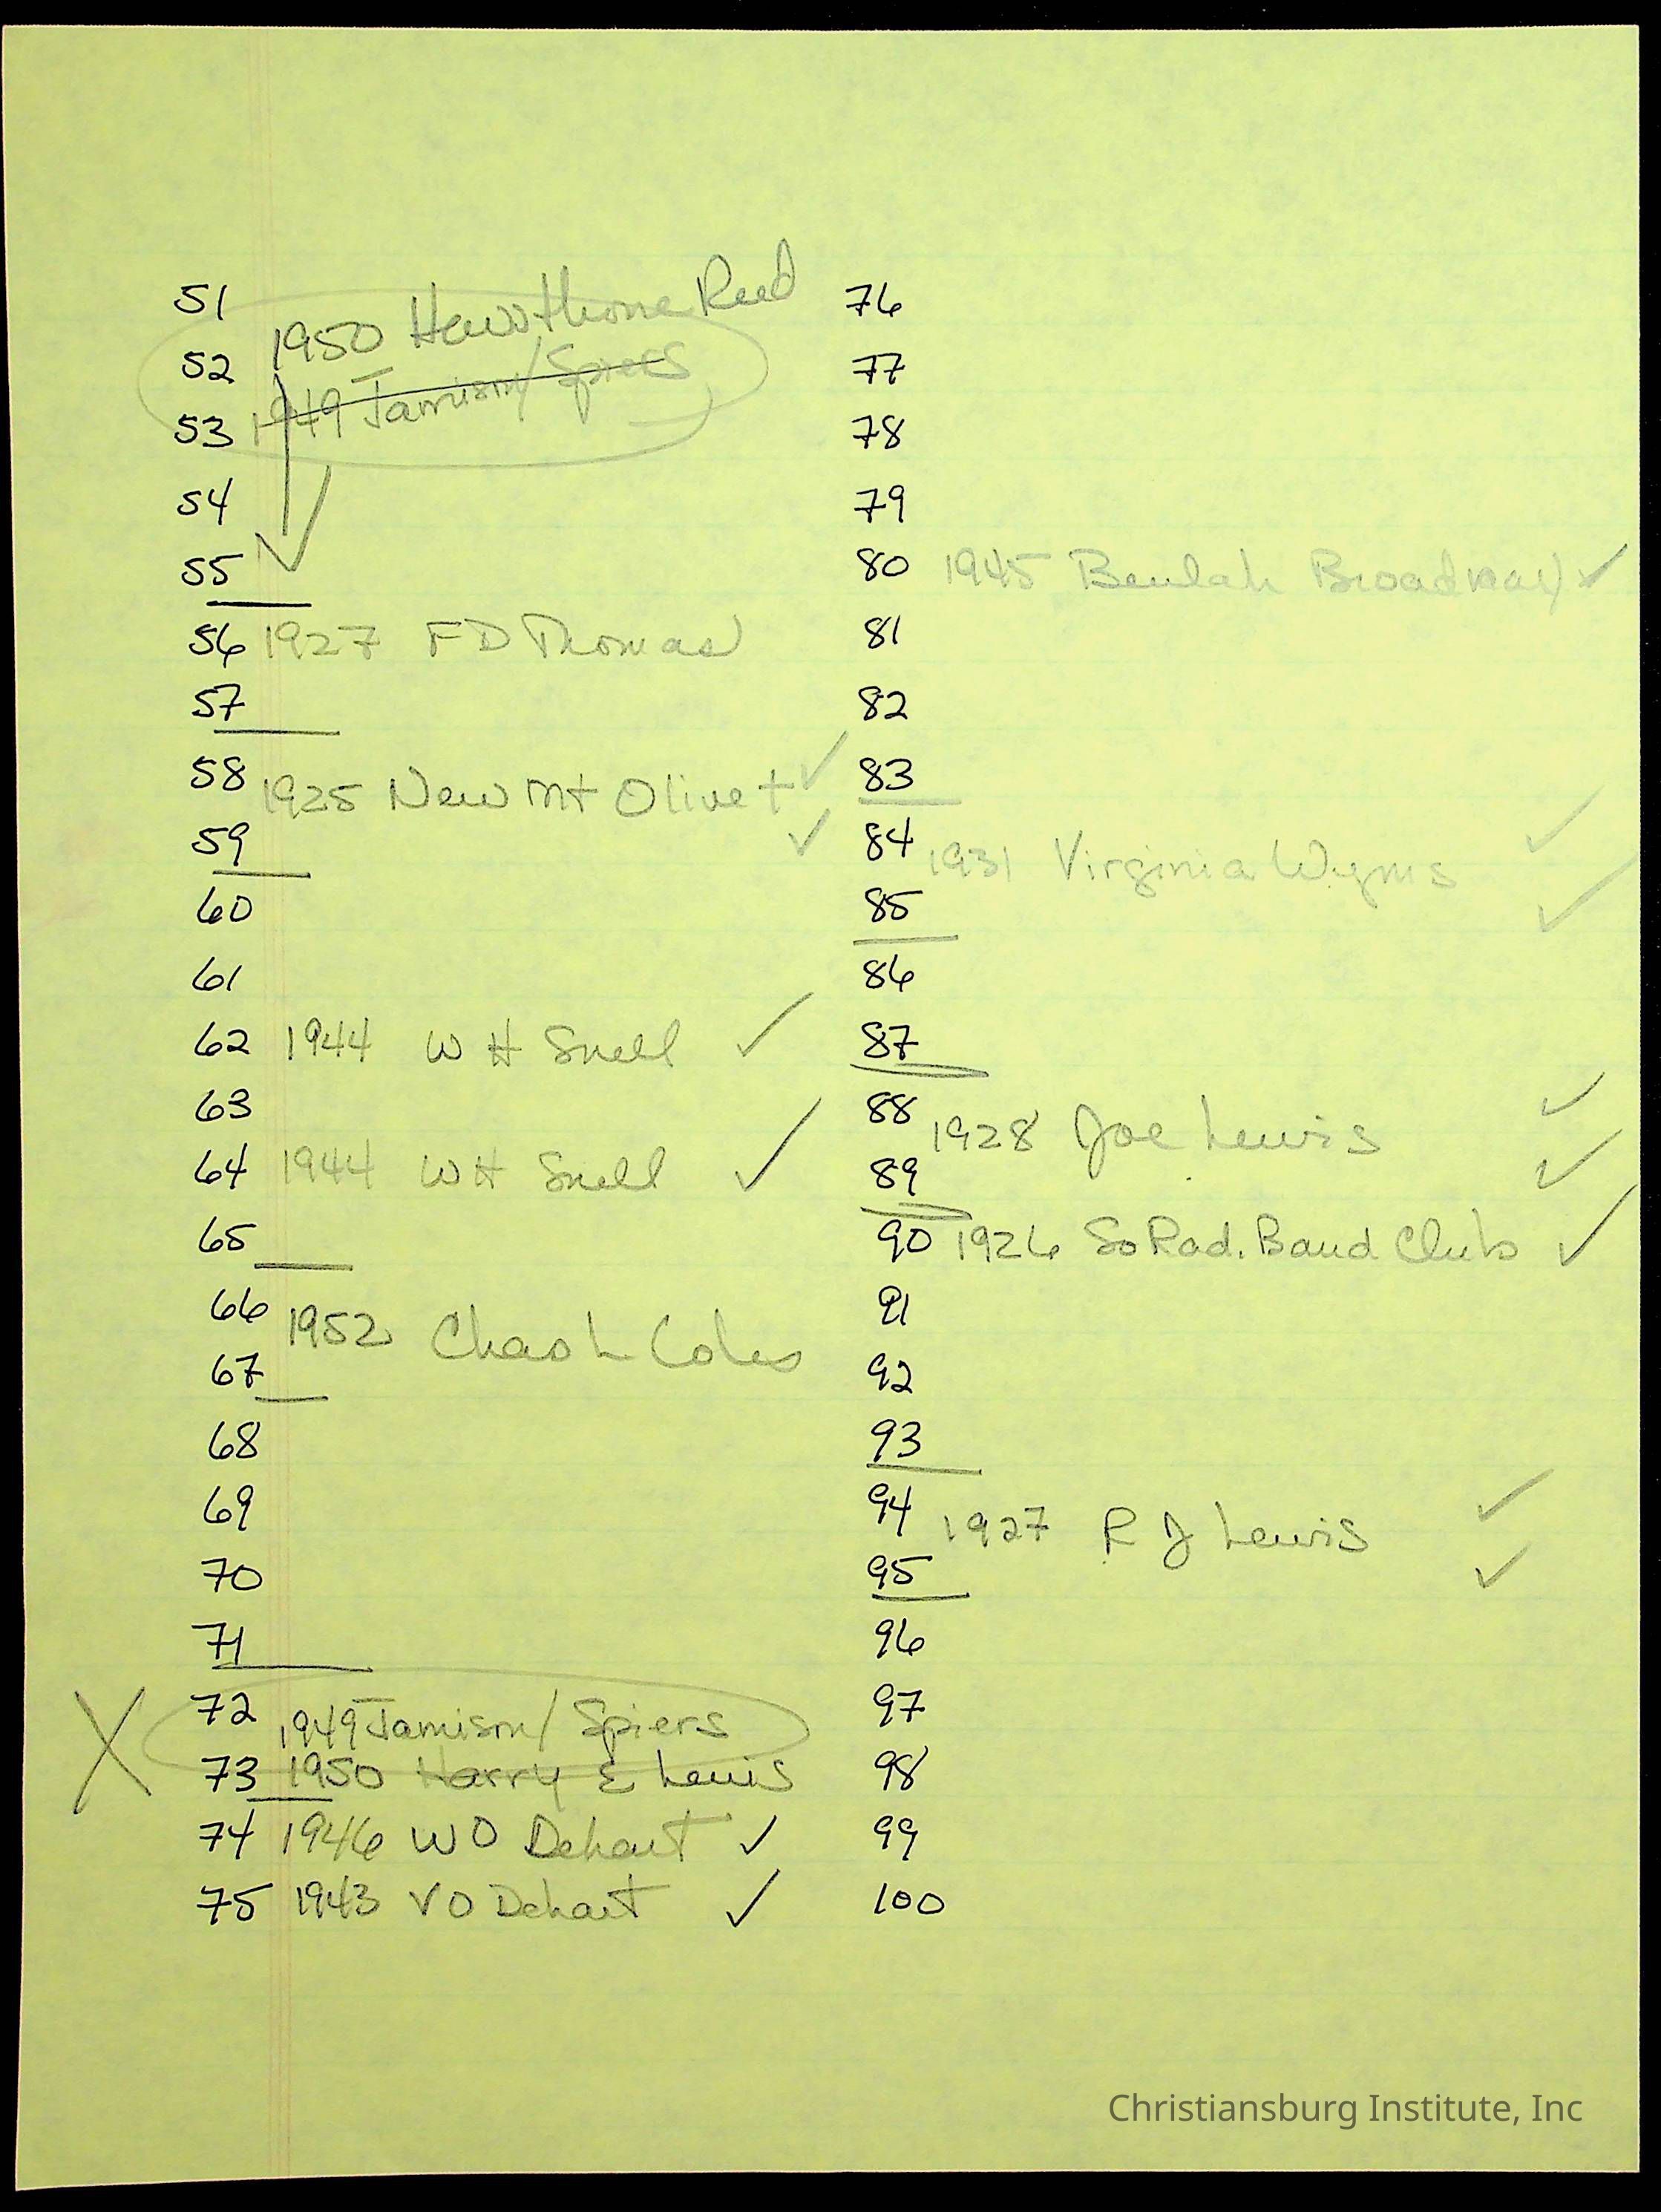 51
1950 Hawthorne Reed
52
1949 Jamison/Spiers
53
54
55
56 1927 F D Thomas
57
58
1925 New Mt Olivet
59
60
61
62 1944 W H Snell
63
64 1944 W H Snell
65
66
1952 Chas L Coles
67
68
69
70
71
72
1949 Jamison/Spiers
73 1950 Harry E Lewis
74 1946 W O Dehart
75 1943 V O Dehart
76
77
78
79
80 1945 Beulah Broadway
81
82
83
84
1931 Virginia
85
86
87
88
1928 Joe Lewis
89
90 1926 So Rad. Band Club
91
92
93
94
1927 R J Lewis
95
96
97
98
99
100
Christiansburg Institute, Inc